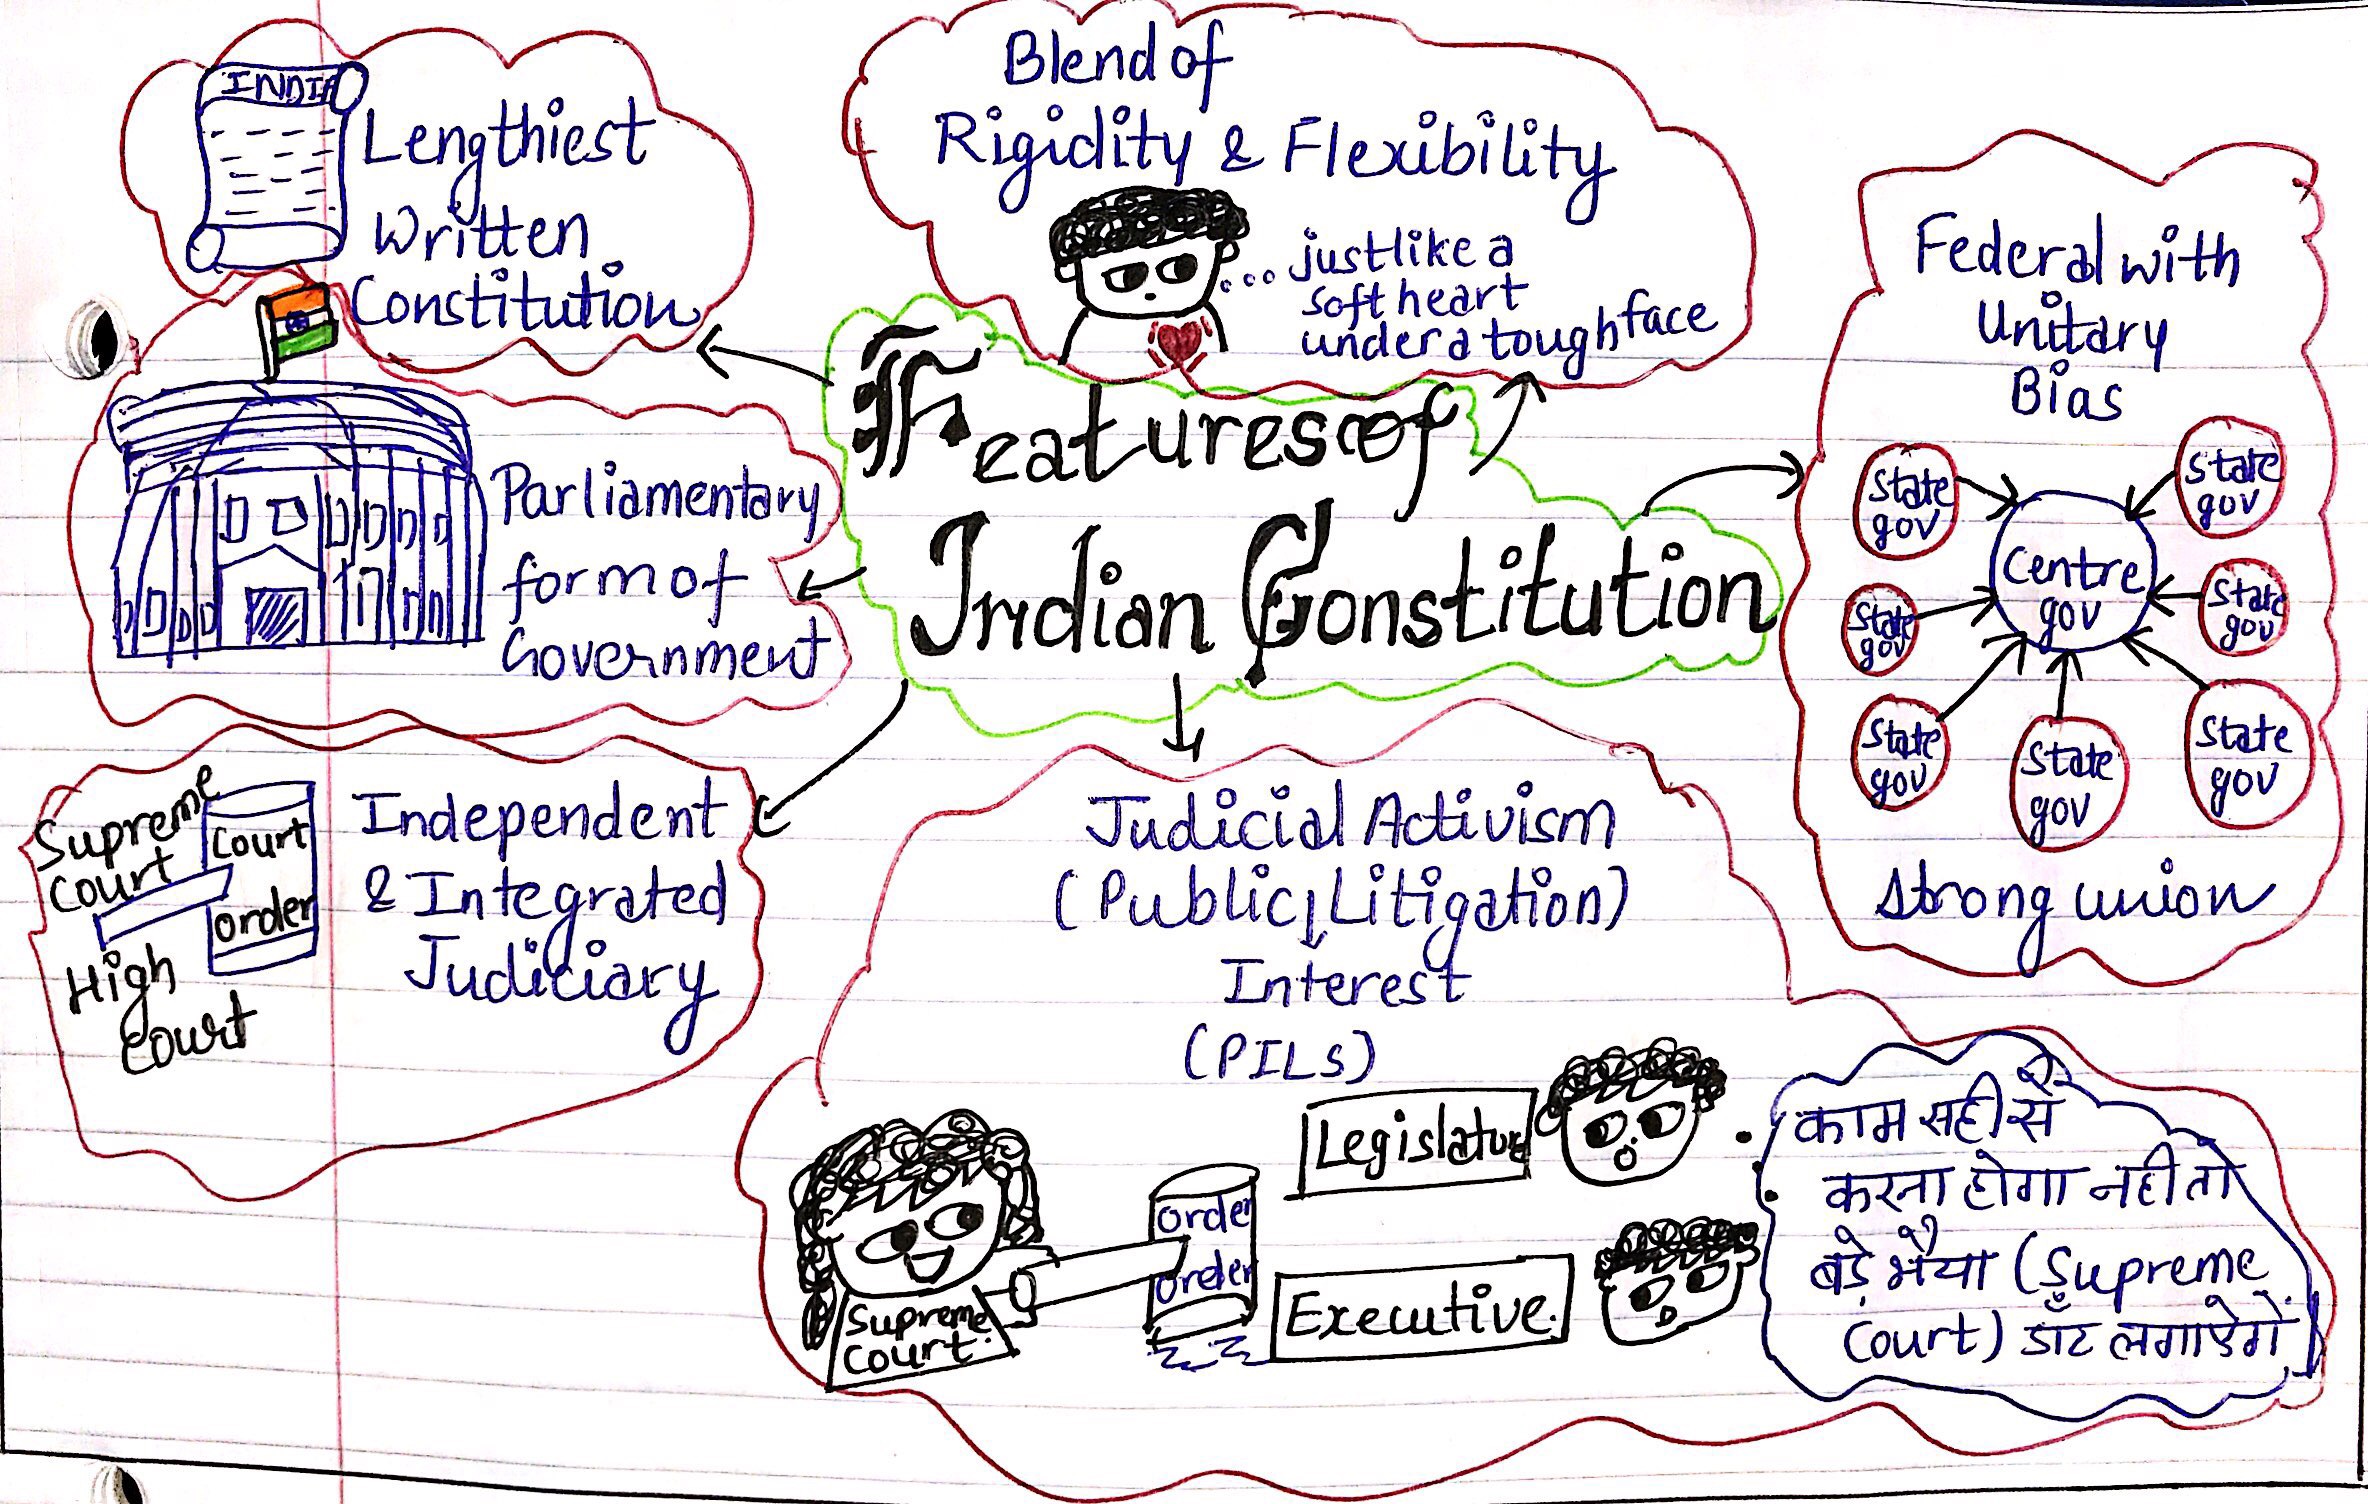 INDIA
Lengthiest
Written
Constitution
Blend of
Rigidity & Flexibility
... just like a
soft heart
under a tough face
Federal with
Unitary
Bias
State
gov
State
gov
State
gov
State
gov
State
gov
State
gov
State
gov
Centre
gov
Strong union
Features of
Indian Constitution
Parliamentary
form of
Government
Supreme
Court
High
Court
Court
order
Independent
& Integrated
Judiciary
Judicial Activism
(Public Litigation)
Interest
(PILs)
Supreme
Court.
order
order
Legislature
Executive.
काम सही से
करना होगा नही तो
बड़े भैया (Supreme
Court) डाँट लगाऐगें